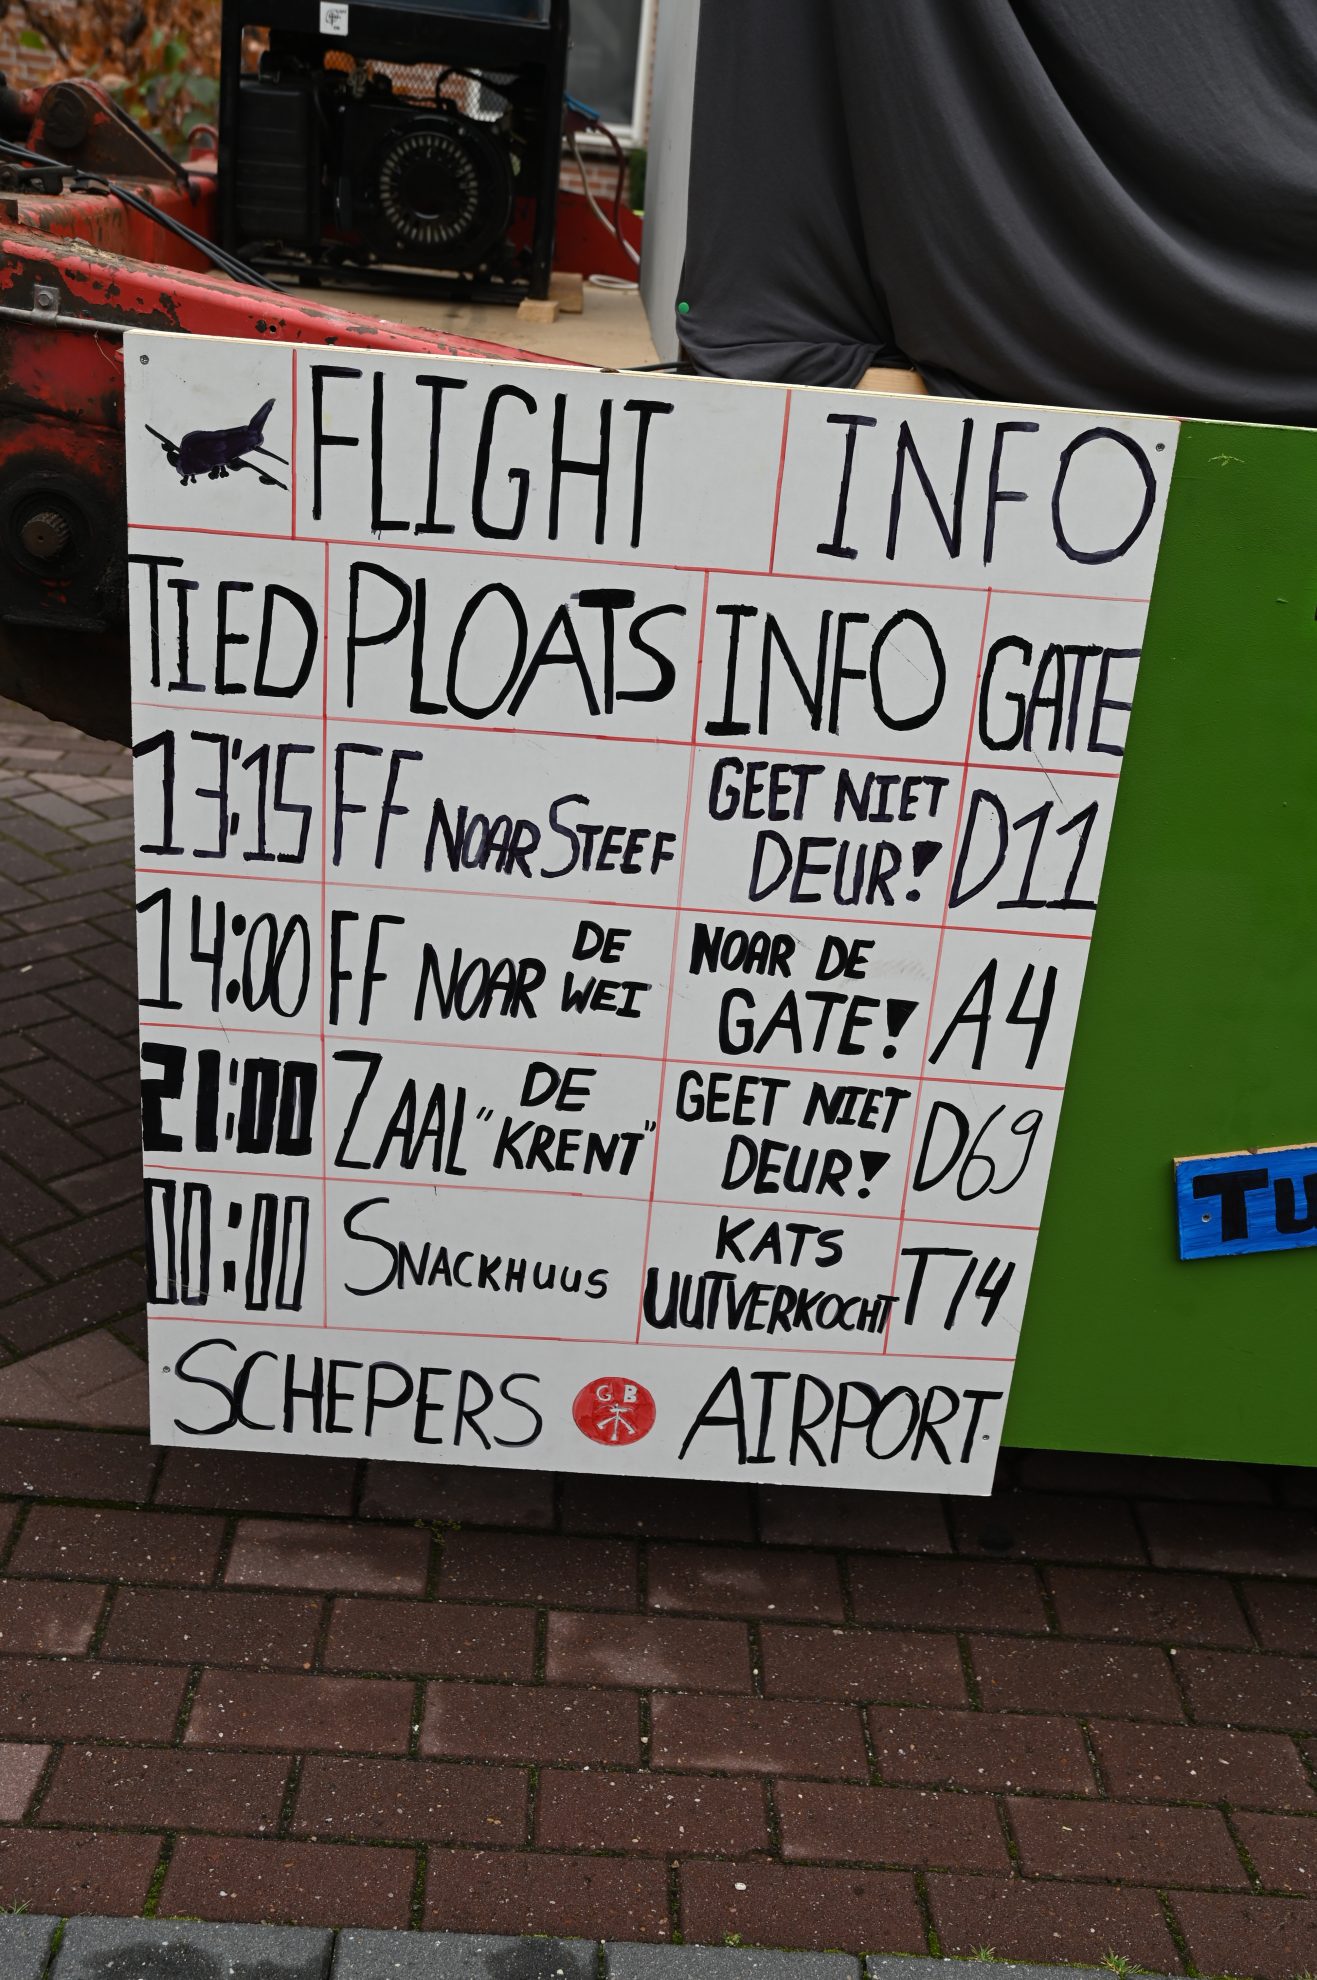 FLIGHT INFO
TIED PLOATS INFO GATE
13:15 FF NOAR STEEF GEET NIET DEUR! D11
14:00 FF NOAR DE WEI NOAR DE GATE! A4
21:00 ZAAL "DE KRENT" GEET NIET DEUR! D69
00:00 SNACKHUUS KATS UUTVERKOCHT T14
SCHEPERS GB AIRPORT